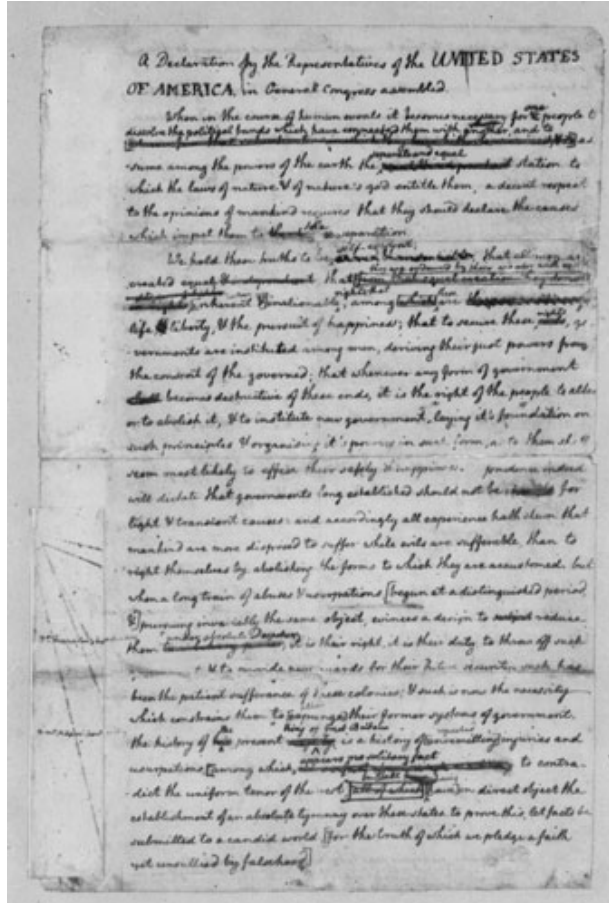 A Declaration by the Representatives of the UNITED STATES
OF AMERICA, in General Congress assembled.
When in the course of human events it becomes necessary for one people to
dissolve the political bands which have connected them with another, and to
as-
separate and equal
-sume among the powers of the earth the station to
which the laws of nature & of nature's god entitle them, a decent respect
to the opinions of mankind requires that they should declare the causes
which impel them to the separation.
self-evident,
We hold these truths to be that all men are
created equal that
they are endowed by their creator with
rights; that these
inherent & inalienable among which are
life, liberty, & the pursuit of happiness; that to secure these rights, go-
-vernments are instituted among men, deriving their just powers from
the consent of the governed; that whenever any form of government
becomes destructive of these ends, it is the right of the people to alter
or to abolish it, & to institute new government, laying it's foundation on
such principles & organising it's powers in such form, as to them shall
seem most likely to effect their safety & happiness. prudence indeed
will dictate that governments long established should not be for
light & transient causes: and accordingly all experience hath shewn that
mankind are more disposed to suffer while evils are sufferable, than to
right themselves by abolishing the forms to which they are accustomed. but
when a long train of abuses & usurpations [begun at a distinguished period,
&] pursuing invariably the same object, evinces a design to reduce
under absolute Despotism
them it is their right, it is their duty, to throw off such
& to provide new guards for their future security. such has
been the patient sufferance of these colonies; & such is now the necessity
which constrains them to [expunge] their former systems of government.
king of Great Britain
the history of the present is a history of [unremitting] injuries and
usurpations, [among which,
appears no solitary fact
to contra-
dict the uniform tenor of the rest
in direct object the
establishment of an absolute tyranny over these states. to prove this, let facts be
submitted to a candid world, [for the truth of which we pledge a faith
yet unsullied by falsehood]